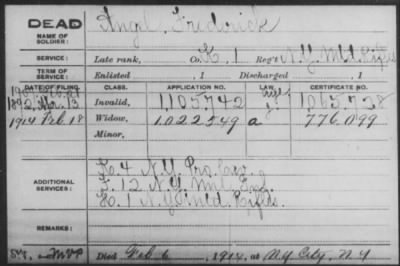 DEAD
NAME OF SOLDIER:
Angel, Frederick
SERVICE:
Late rank, Co. K, 1 Reg't N.Y. Mtd Rifles
TERM OF SERVICE:
Enlisted , 1 Discharged , 1
DATE OF FILING. CLASS. APPLICATION NO. LAW. CERTIFICATE NO.
1892, Apr. 13 Invalid, 1,105,742 1,065,728
1914 Feb. 18 Widow, 1,022,549 a 776,099
Minor,
ADDITIONAL SERVICES:
Co. 4 N.Y. Pro. Cav.
F. 12 N.Y. Mil. Inf.
Co. 1 N.Y. Mtd. Rifles.
REMARKS:
Died Feb 6, 1914, at N.Y. City, N.Y.